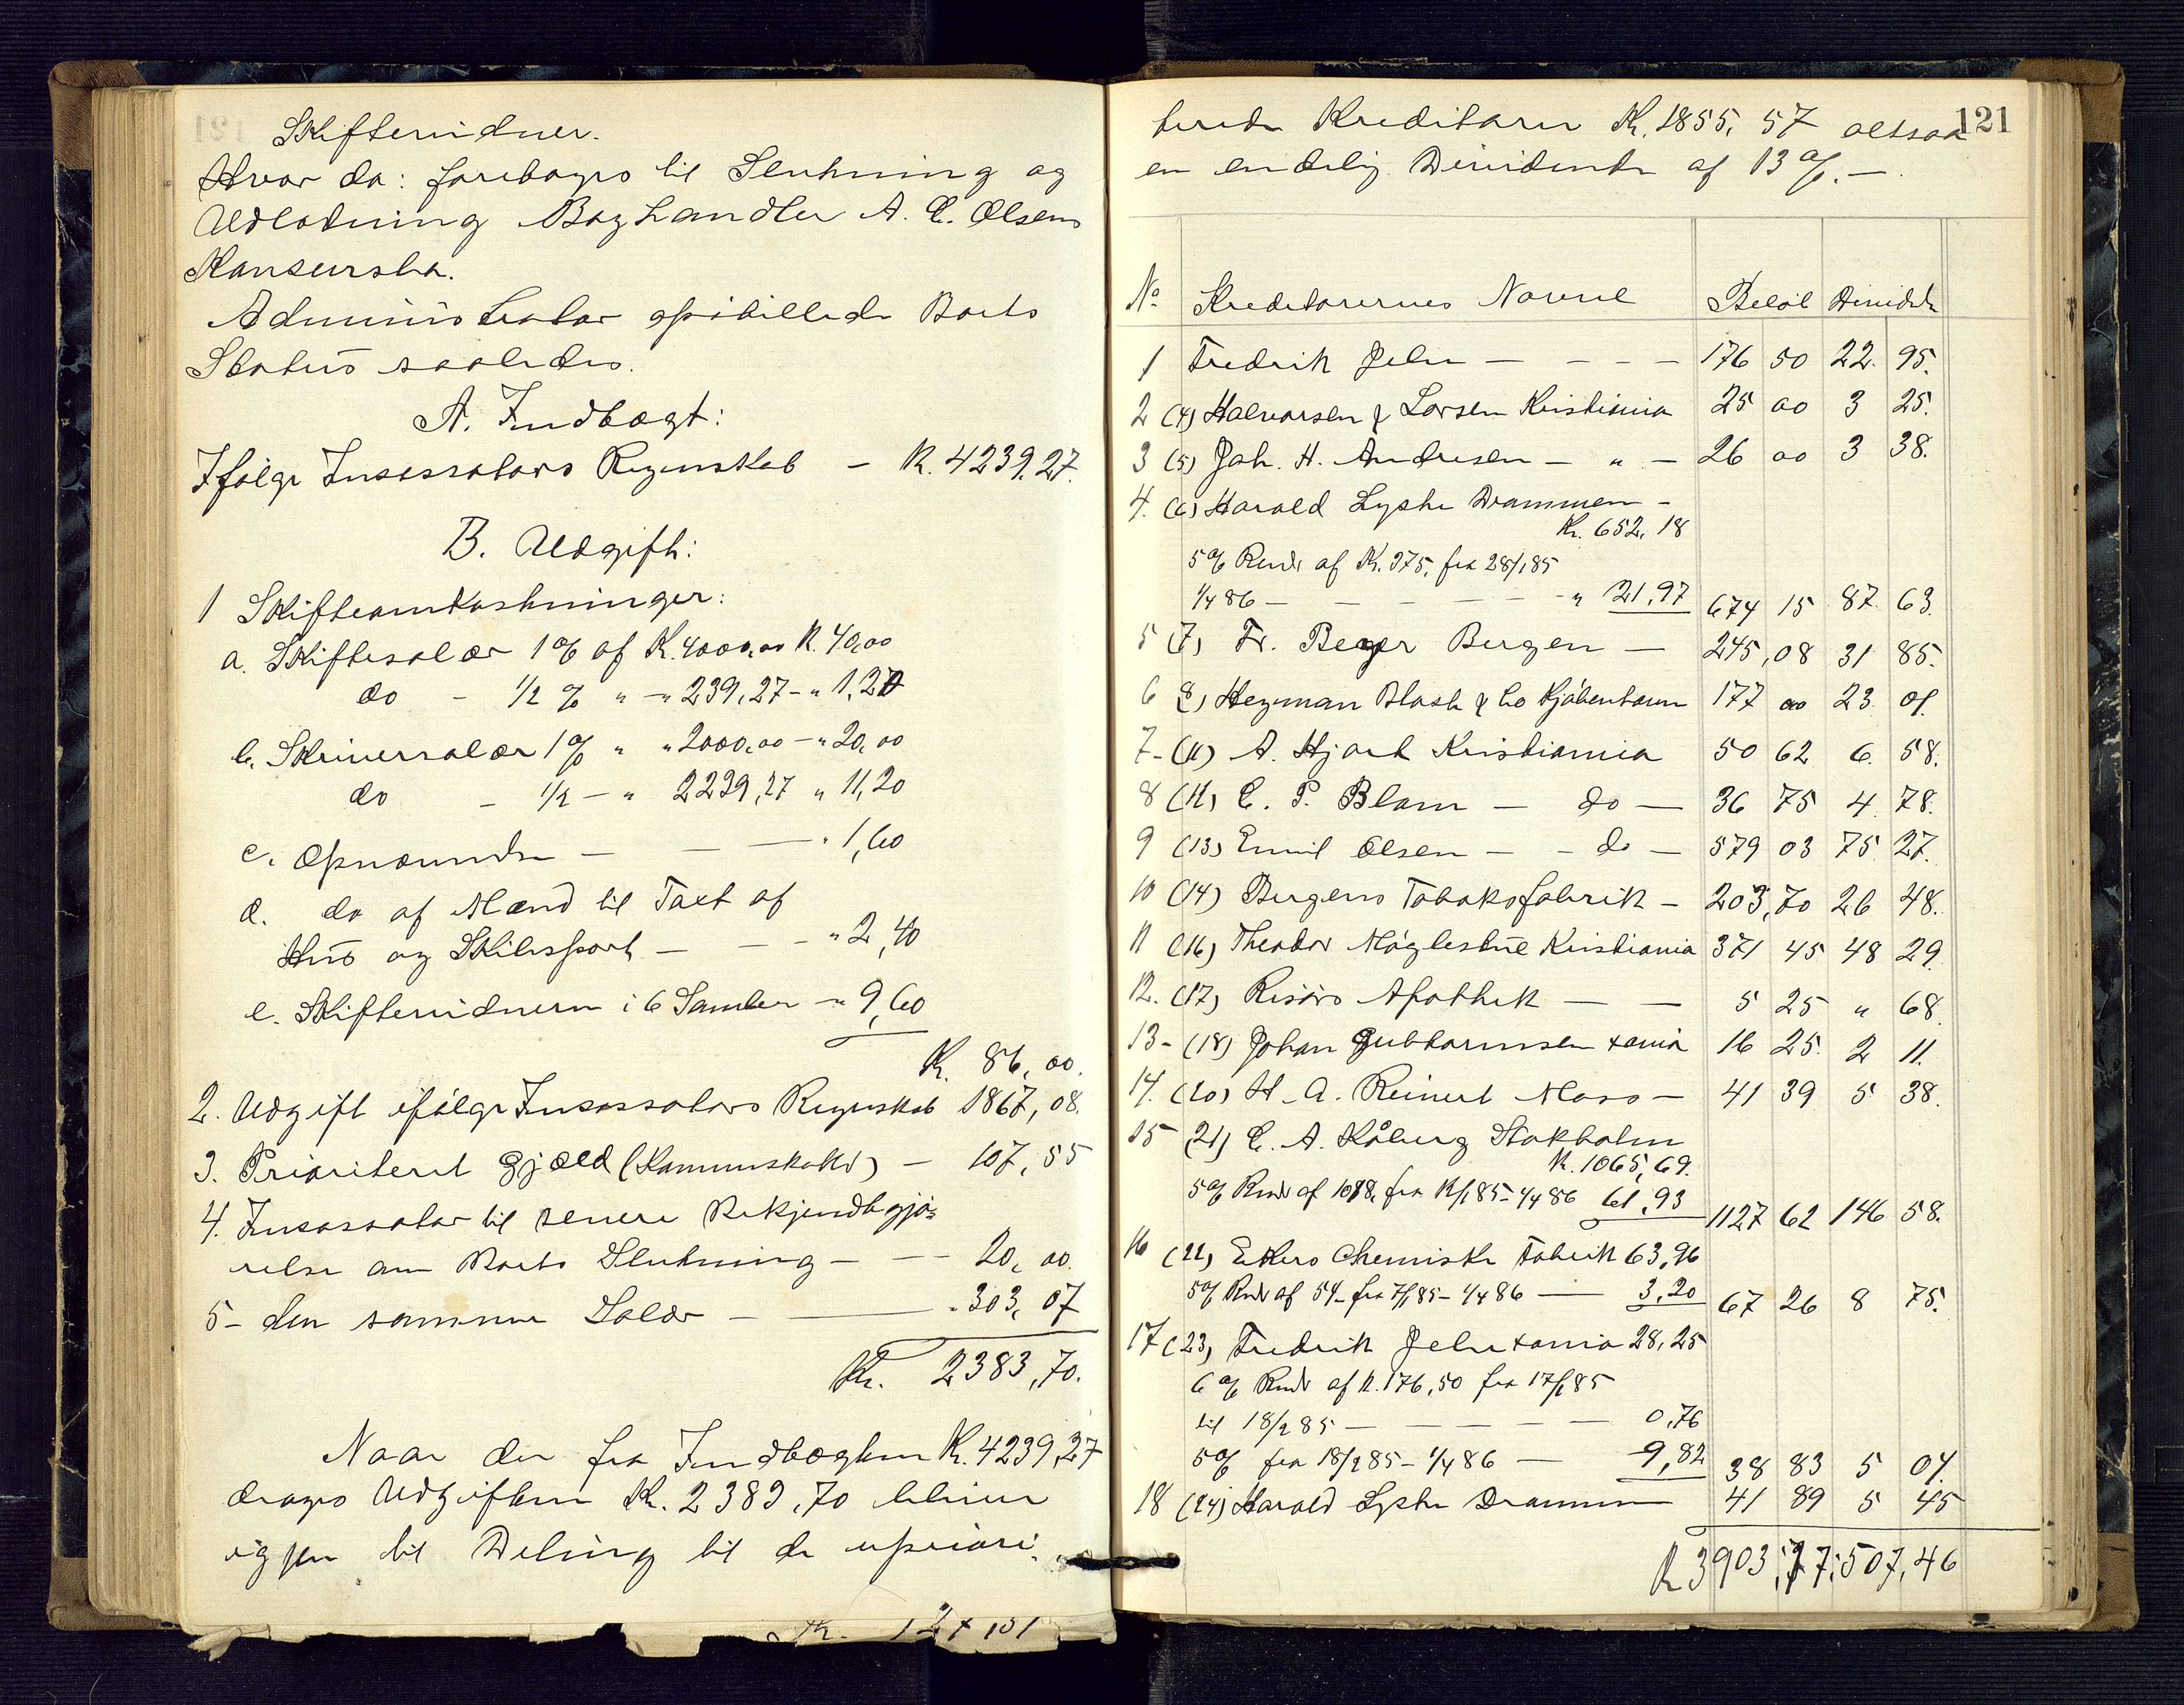 Skiftevidner.
Hvor da: foretoges til Slutning og
Udlodning Boghandler A. C. Olsens
Konkursbo.
Administrator opstillede Boets
Status saaledes.
A. Indtægt:
Ifølge Incassators Regnskab - K. 4239,27.
B. Udgift:
1 Skifteomkostninger:
a. Skiftesalær 1% af K. 4000,00 K. 40,00
do - 1/2 % " - " 239,27 - " 1,20
b. Skriversalær 1% " " 2000,00 - " 20,00
do - 1/2 - " 2239,27 " 11,20
c. Opnævnelse - - - " 1,60
d. do af Mænd til Taxt af
Hus og Skibspart - - - " 2,40
e. Skiftevidnern i 6 Samler - " 9,60
K. 86,00.
2. Udgift ifølge Incassators Regnskab 1867,08.
3. Prioriteret Gjæld (Kommuneskat) - 107,55
4. Incassator til senere Bekjendtgjø=
relse om Boets Slutning - - - 20,00.
5 - den samme Salær - - " 303,07
Kr. 2383,70.
Naar der fra Indtægten K. 4239,27
drages Udgiften K. 2383,70 bliver
igjen til Deling til de upriori-
Kr. 127,51
121
terede Kreditorer K. 1855,57 altsaa
en endelig Dividende af 13 %. -
No Kreditorernes Navne Beløb Dividde
1 Fredrik Petersen - - - - 176 50 22. 95.
2 (4) Halvorsen & Larsen Kristiania 25 00 3 25.
3 (5) Joh. H. Andresen - " - 26 00 3 38.
4. (6) Harald Lyche Drammen -
Kr. 652,18
5% Rente af K. 375, fra 28/1 85
1/4 86 - - - - - " 21,97 674 15 87. 63.
5 (7) Fr. Beyer Bergen - 245,08 31 85.
6 (8) Heyman Bloch & Co Kjøbenhavn 177 00 23. 01.
7 - (11) A. Hjort Kristiania 50 62 6. 58.
8 (12) C. P. Blom - do - 36 75 4. 78.
9 (13) Emil Olsen - - do - 579 03 75 27.
10 (14) Bergens Tobaksfabrik - 203,70 26 48.
11 (16) Theodor Møglestue Kristiania 371 45 48 29.
12. (17) Risørs Apothek - - 5 25 " 68.
13 - (18) Johan Guttormsen xania 16 25. 2 11.
14. (20) H. A. Reinert Moss - 41 39 5 38.
15 (21) C. A. Kåberg Stokholm
K. 1065,69.
61,93 1127 62 146 58.
16 (22) Ekers Chemiske Fabrik 63,96
5% Rente af 54 - fra 7/1 85 - 1/4 86 - 3,20 67 26 8 75.
17 (23) Fredrik xania 28,25
6% Rente af K. 176,50 fra 17/1 85
til 18/2 85 - - - - - 0,76
5% fra 18/2 85 - 1/4 86 - 9,82 38 83 5 04.
18 (24) Harald Lyche Drammen 41 89 5 45
K 3903,77. 507,46